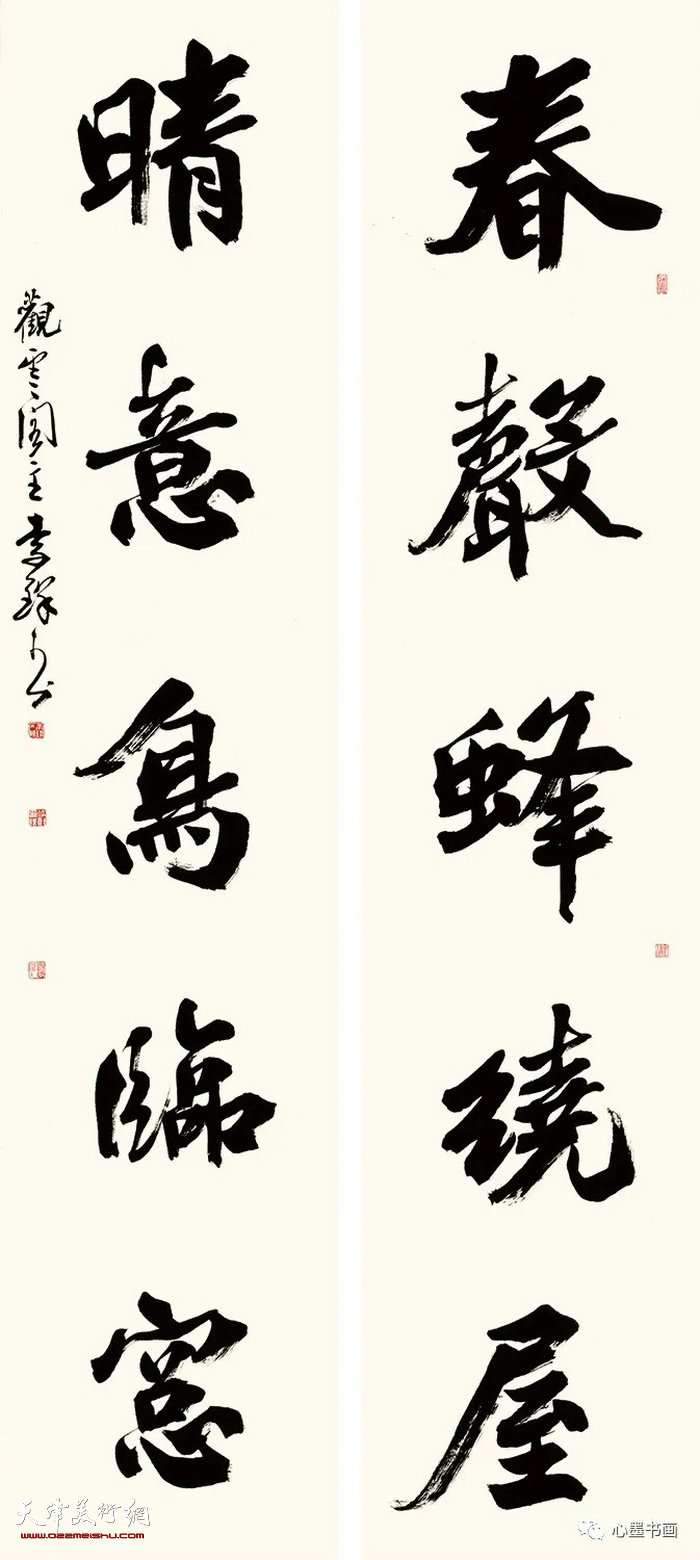 春聲蜂繞屋
晴意鳥臨窓
觀雲閣主李鋅之書
天津美术網
www.022meishu.com
心墨书画